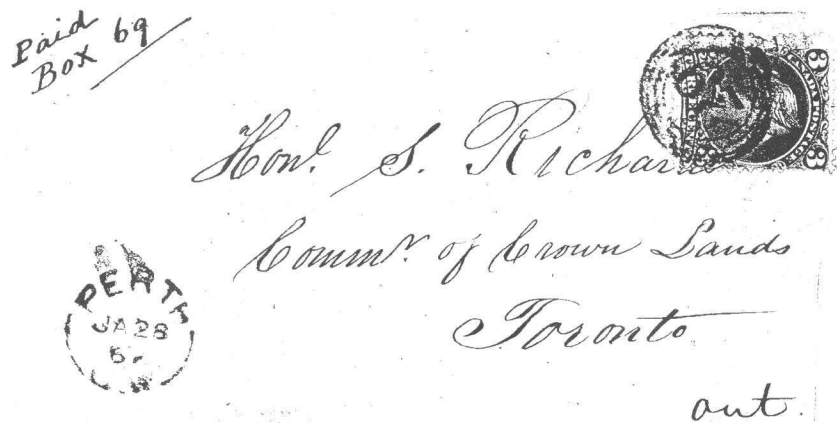 Paid
Box 69
Honl. S. Richard
Commr. of Crown Lands
Toronto
Ont.
PERTH
JA 28
3
3